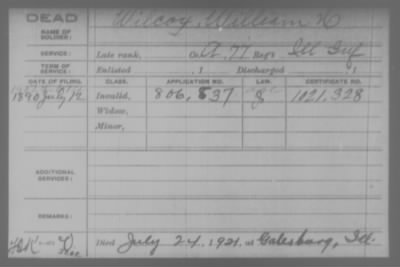 DEAD
NAME OF SOLDIER: Wilcox, William H
SERVICE: Late rank, Co. A, 77 Reg't Ill Inf
TERM OF SERVICE: Enlisted , 1 Discharged , 1
DATE OF FILING. CLASS. APPLICATION NO. LAW. CERTIFICATE NO.
1890 July 12 Invalid, 806,837 J 1021,328
Widow,
Minor,
ADDITIONAL SERVICES:
REMARKS:
Died July 24, 1921, at Galesburg, Ill.